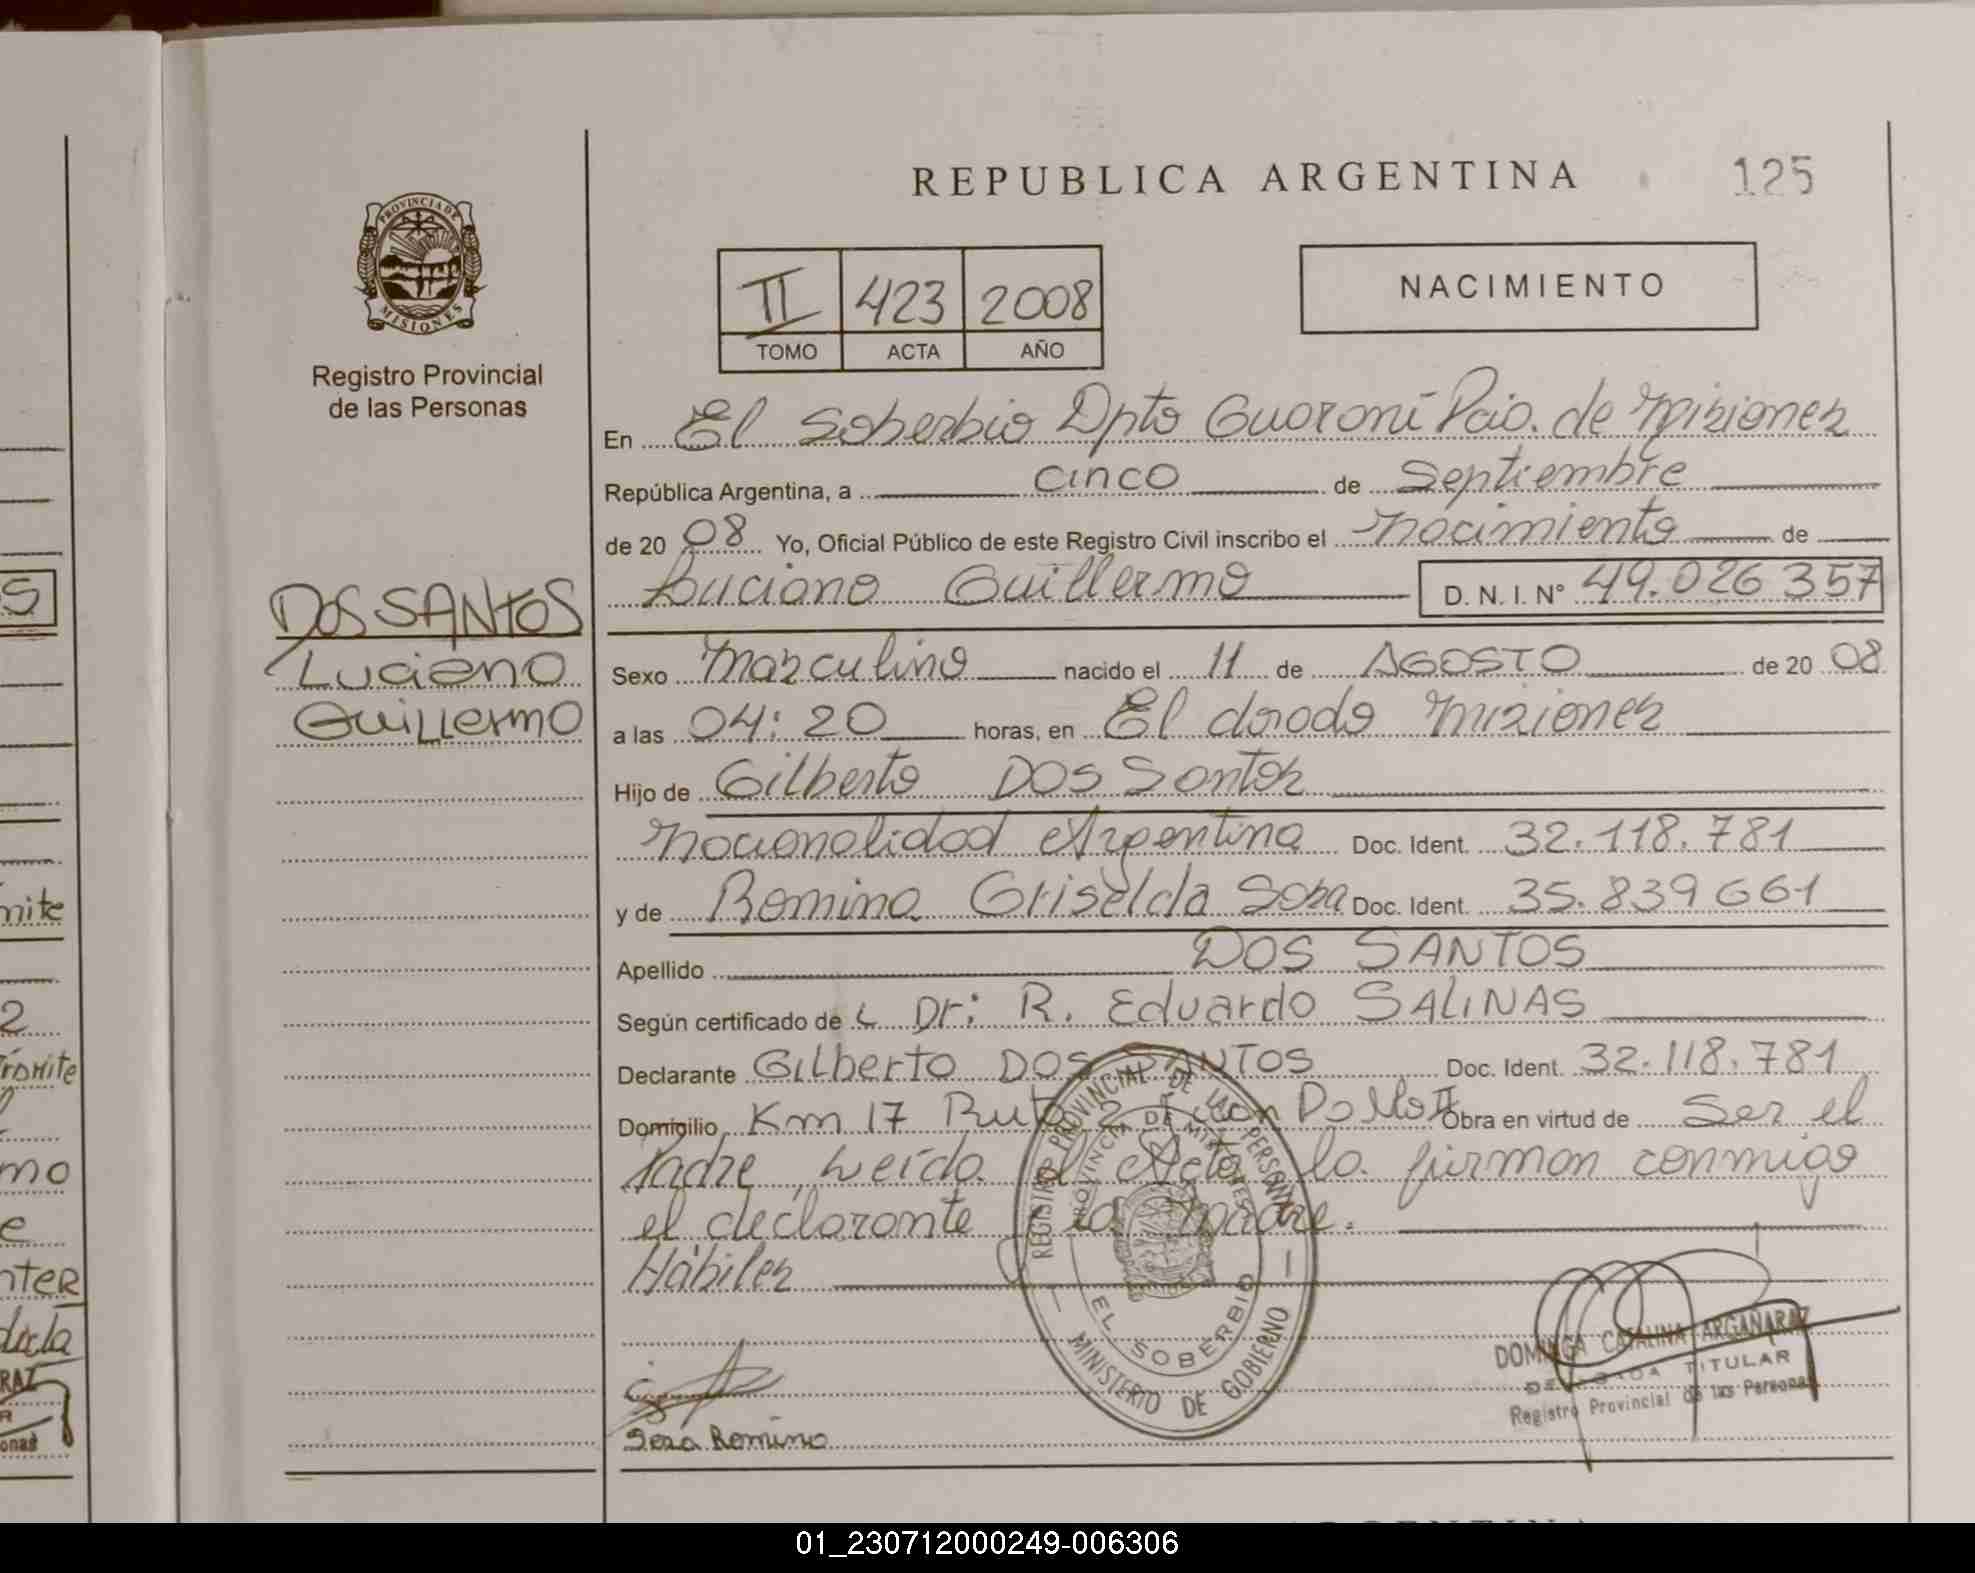 REPUBLICA ARGENTINA
125
PROVINCIA DE
MISIONES
Registro Provincial
de las Personas
II 423 2008
TOMO ACTA AÑO
NACIMIENTO
En El Soberbio Dpto Guaraní Pcio. de Misiones
República Argentina, a cinco de Septiembre
de 20 08 Yo, Oficial Público de este Registro Civil inscribo el nacimiento de
Luciano Guillermo D. N. I. Nº 49.026 357
DOS SANTOS
Luciano
Guillermo
Sexo Masculino nacido el 11 de AGOSTO de 20 08
a las 04:20 horas, en El dorado Misiones
Hijo de Gilberto DOS Santos
nacionalidad Argentina Doc. Ident. 32.118.781
y de Romina Griselda Sosa Doc. Ident. 35.839 661
Apellido DOS SANTOS
Según certificado de L Dr: R. Eduardo SALINAS
Declarante Gilberto DOS SANTOS Doc. Ident. 32.118.781
Domicilio Km 17 Ruta 2 Obra en virtud de Ser el
Padre, Leída el Acta la firman conmigo
el declarante y la madre.
Hábiles
REGISTRO PROVINCIAL DE LAS PERSONAS
PROVINCIA DE MISIONES
EL SOBERBIO
MINISTERIO DE GOBIERNO
DOMINGA CATALINA ARGAÑARAZ
DELEGADA TITULAR
Registro Provincial de las Personas
Sosa Romina
mite
2
Trámite
mo
e
nter
RAZ
onas
S
01_230712000249-006306